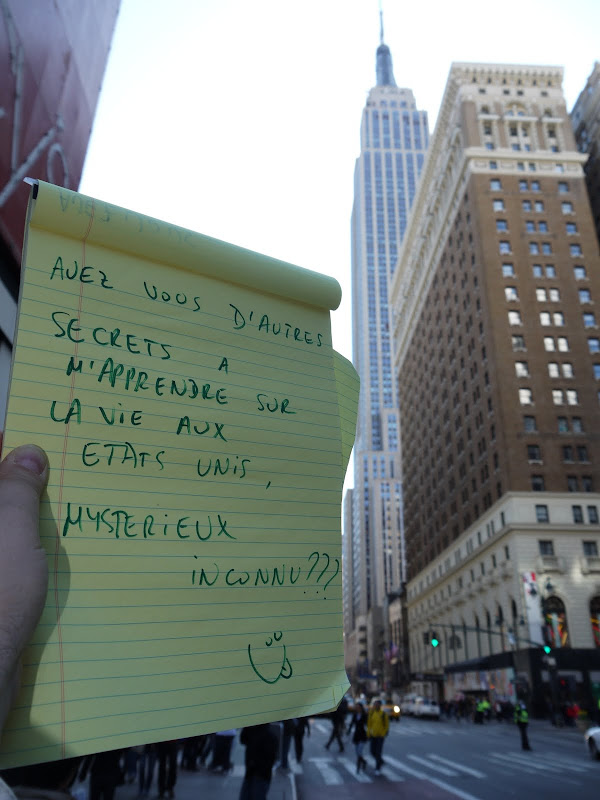 AVEZ VOUS D'AUTRES
SECRETS A
M'APPRENDRE SUR
LA ViE AUX
ETATS UNIS,
MYSTERiEUX
iNCONNU???